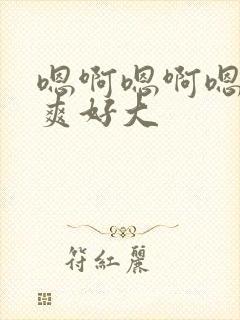 嗯啊嗯啊嗯
爽好大
符紅麗